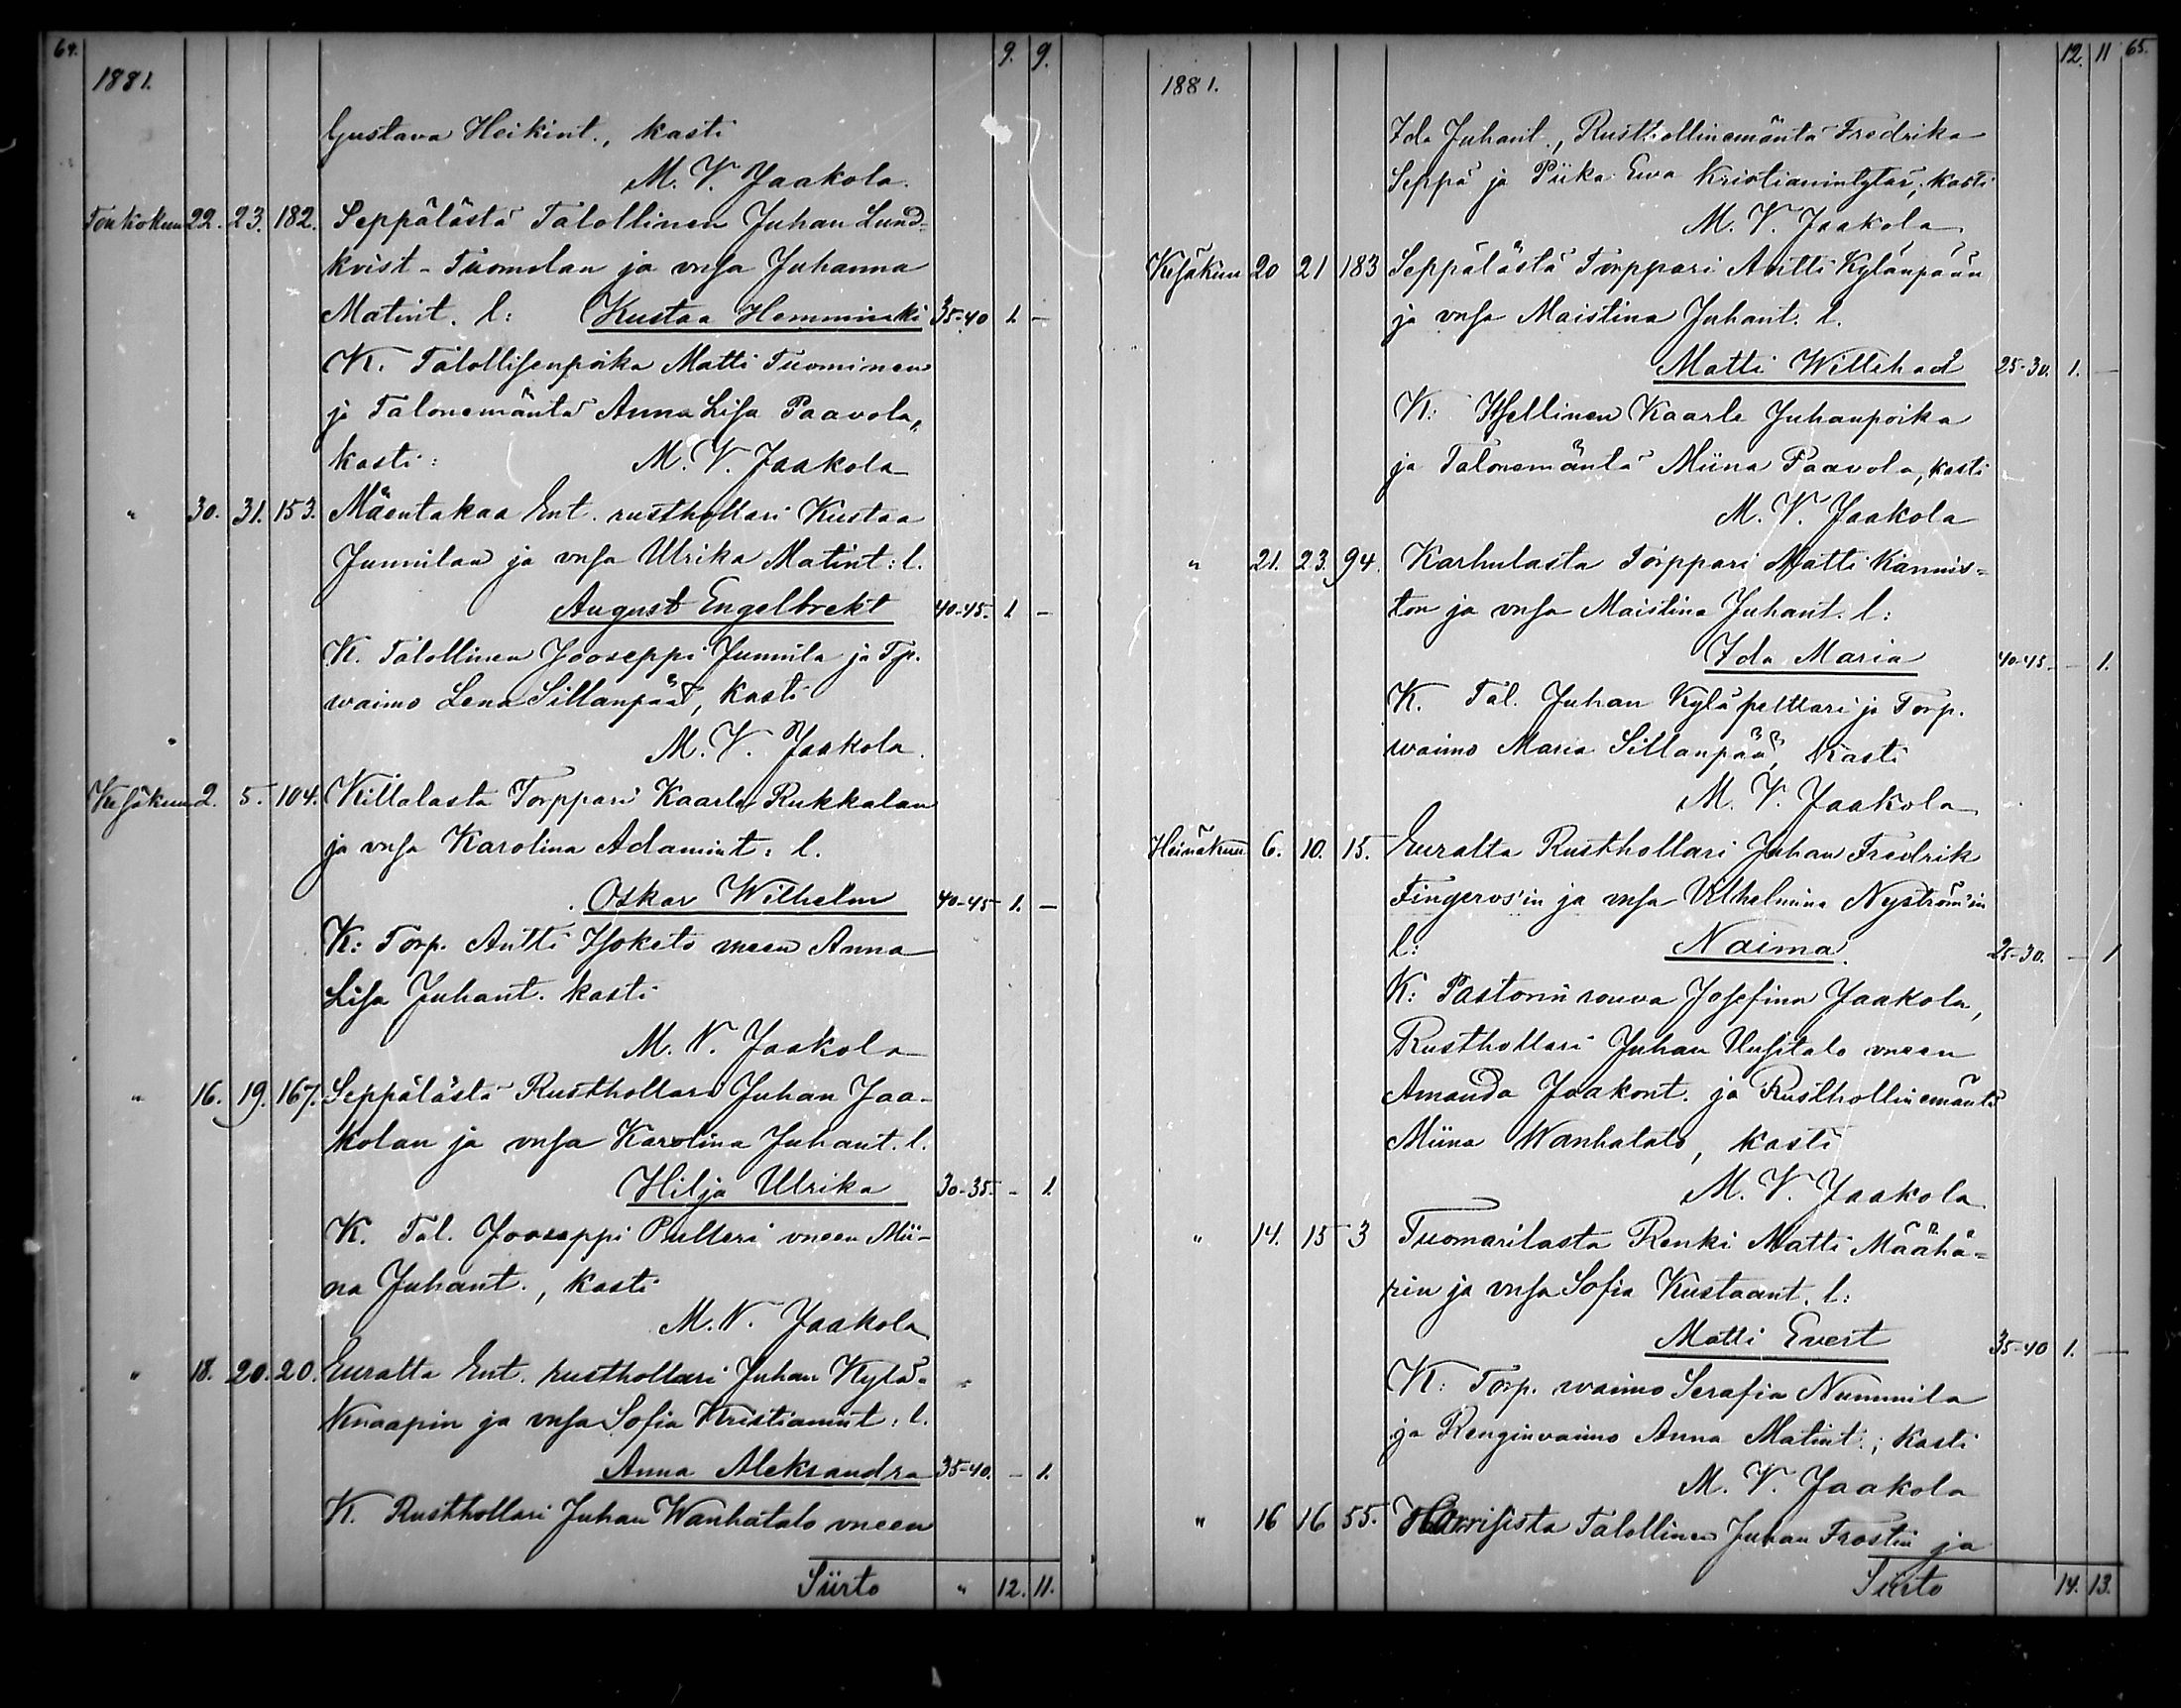 64. 9. 9.
1881.
Gustava Heikint., kasti
M. V. Jaakola.
Toukokuu 22. 23. 182. Seppälästä Talollinen Juhan Lund-
kvist-Tuomolan ja vmsa Juhanna
Matint. l: Kustaa Hemminki 35-40 1. –
K. Talollisenpoika Matti Tuominen
ja Talonemäntä Anna Lisa Paavola,
kasti: M. V. Jaakola
" 30. 31. 153. Mäentakaa Ent. rusthollari Kustaa
Junnilan ja vmsa Ulrika Matint: l.
August Engelbrekt 40-45. 1 –
K. Talollinen Jooseppi Junnila ja Tp.
waimo Lena Sillanpää, kasti
M. V. Jaakola.
Kesäkuu 2. 5. 104. Killalasta Torppari Kaarle Rukkalan
ja vmsa Karolina Adamint: l.
Oskar Wilhelm 40-45 1. –
K: Torp. Antti Isoketo vneen Anna
Lisa Juhant. kasti
M. V. Jaakola
" 16. 19. 167. Seppälästä Rusthollari Juhan Jaa-
kolan ja vmsa Karolina Juhant. l.
Hilja Ulrika 30-35. – 1.
K. Tal. Jooseppi Pelteri vneen Mii-
na Juhant., kasti
M. V. Jaakola
" 18. 20. 20. Euralta Ent. rusthollari Juhan Kylä-
Knaapin ja vmsa Sofia Kristianint: l.
Anna Aleksandra 35-40. – 1.
K. Rusthollari Juhan Wanhatalo vneen
Siirto " 12. 11.
12. 11 65.
1881.
Ida Juhant., Rusthollinemäntä Fredrika
Seppä ja Piika Ewa Kristianintytär, kasti
M. V. Jaakola
Kesäkuu 20 21 183 Seppälästä Torppari Antti Kylänpään
ja vmsa Maistina Juhant. l.
Matti Willehad 25-30. 1. –
K: Itsellinen Kaarle Juhanpoika
ja Talonemäntä Miina Paavola, kasti
M. V. Jaakola
" 21. 23. 94. Karhulasta Torppari Matti Kannis-
ton ja vmsa Maistina Juhant. l:
Ida Maria 40-45. – 1.
K. Tal. Juhan Kyläpelttari ja Torp.
waimo Maria Sillanpää, kasti
M. V. Jaakola
Heinäkuu 6. 10. 15. Euralta Rusthollari Juhan Fredrik
Fingeros'in ja vmsa Vilhelmina Nyström'in
l: Naima. 25-30. – 1
K: Pastorin rouva Josefina Jaakola,
Rusthollari Juhan Uusitalo vneen
Amanda Jaakont. ja Rusthollinemäntä
Miina Wanhatalo, kasti
M. V. Jaakola
" 14. 15 3 Tuomarilasta Renki Matti Määhä-
rin ja vmsa Sofia Kustaant. l:
Matti Evert 35-40 1. –
K: Torp. waimo Serafia Nummila
ja Renginvaimo Anna Matint.; kasti
M. V. Jaakola
" 16 16 55. Talollinen Juhan Frostin ja
Siirto 14. 13.